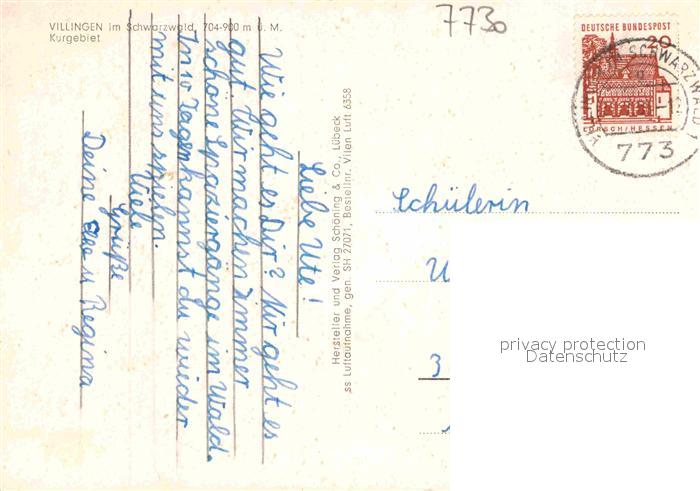 VILLINGEN im Schwarzwald, 704-900 m ü. M.
Kurgebiet
7730
DEUTSCHE BUNDESPOST
20
LORSCH/HESSEN
SCHWARZWALD
773
Liebe Ute!
Wie geht es Dir? Mir geht es
gut. Wir machen immer
schöne Spaziergänge im Wald.
In 10 Tagen kannst du wieder
mit uns spielen.
Liebe
Grüße
Deine u Regina
Hersteller und Verlag Schöning & Co., Lübeck
ss Luftaufnahme, gen. SH 27071, Bestellnr. Villen Luft 6358
Schülerin
U
3
privacy protection
Datenschutz